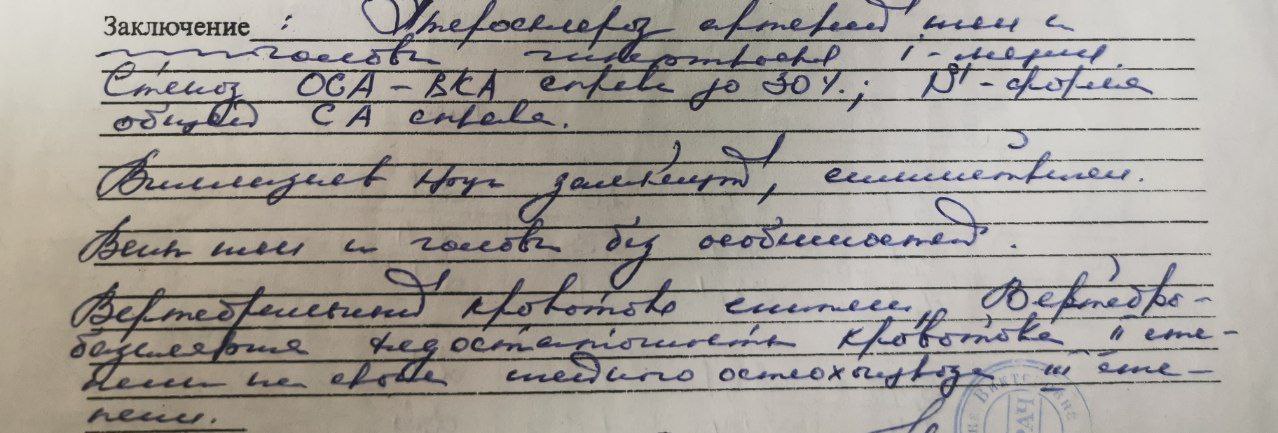 Заключение : Атеросклероз артерий шеи и
головы
Стеноз ОСА - ВСА справа до 30%.; S - форма
общей СА справа.
Виллизиев круг замкнут,
Вены шеи и головы без особенностей.
Вертебральный кровоток снижен, Вертебро-
базилярная недостаточность кровотока II сте-
пени на фоне шейного остеохондроза III сте-
пени.